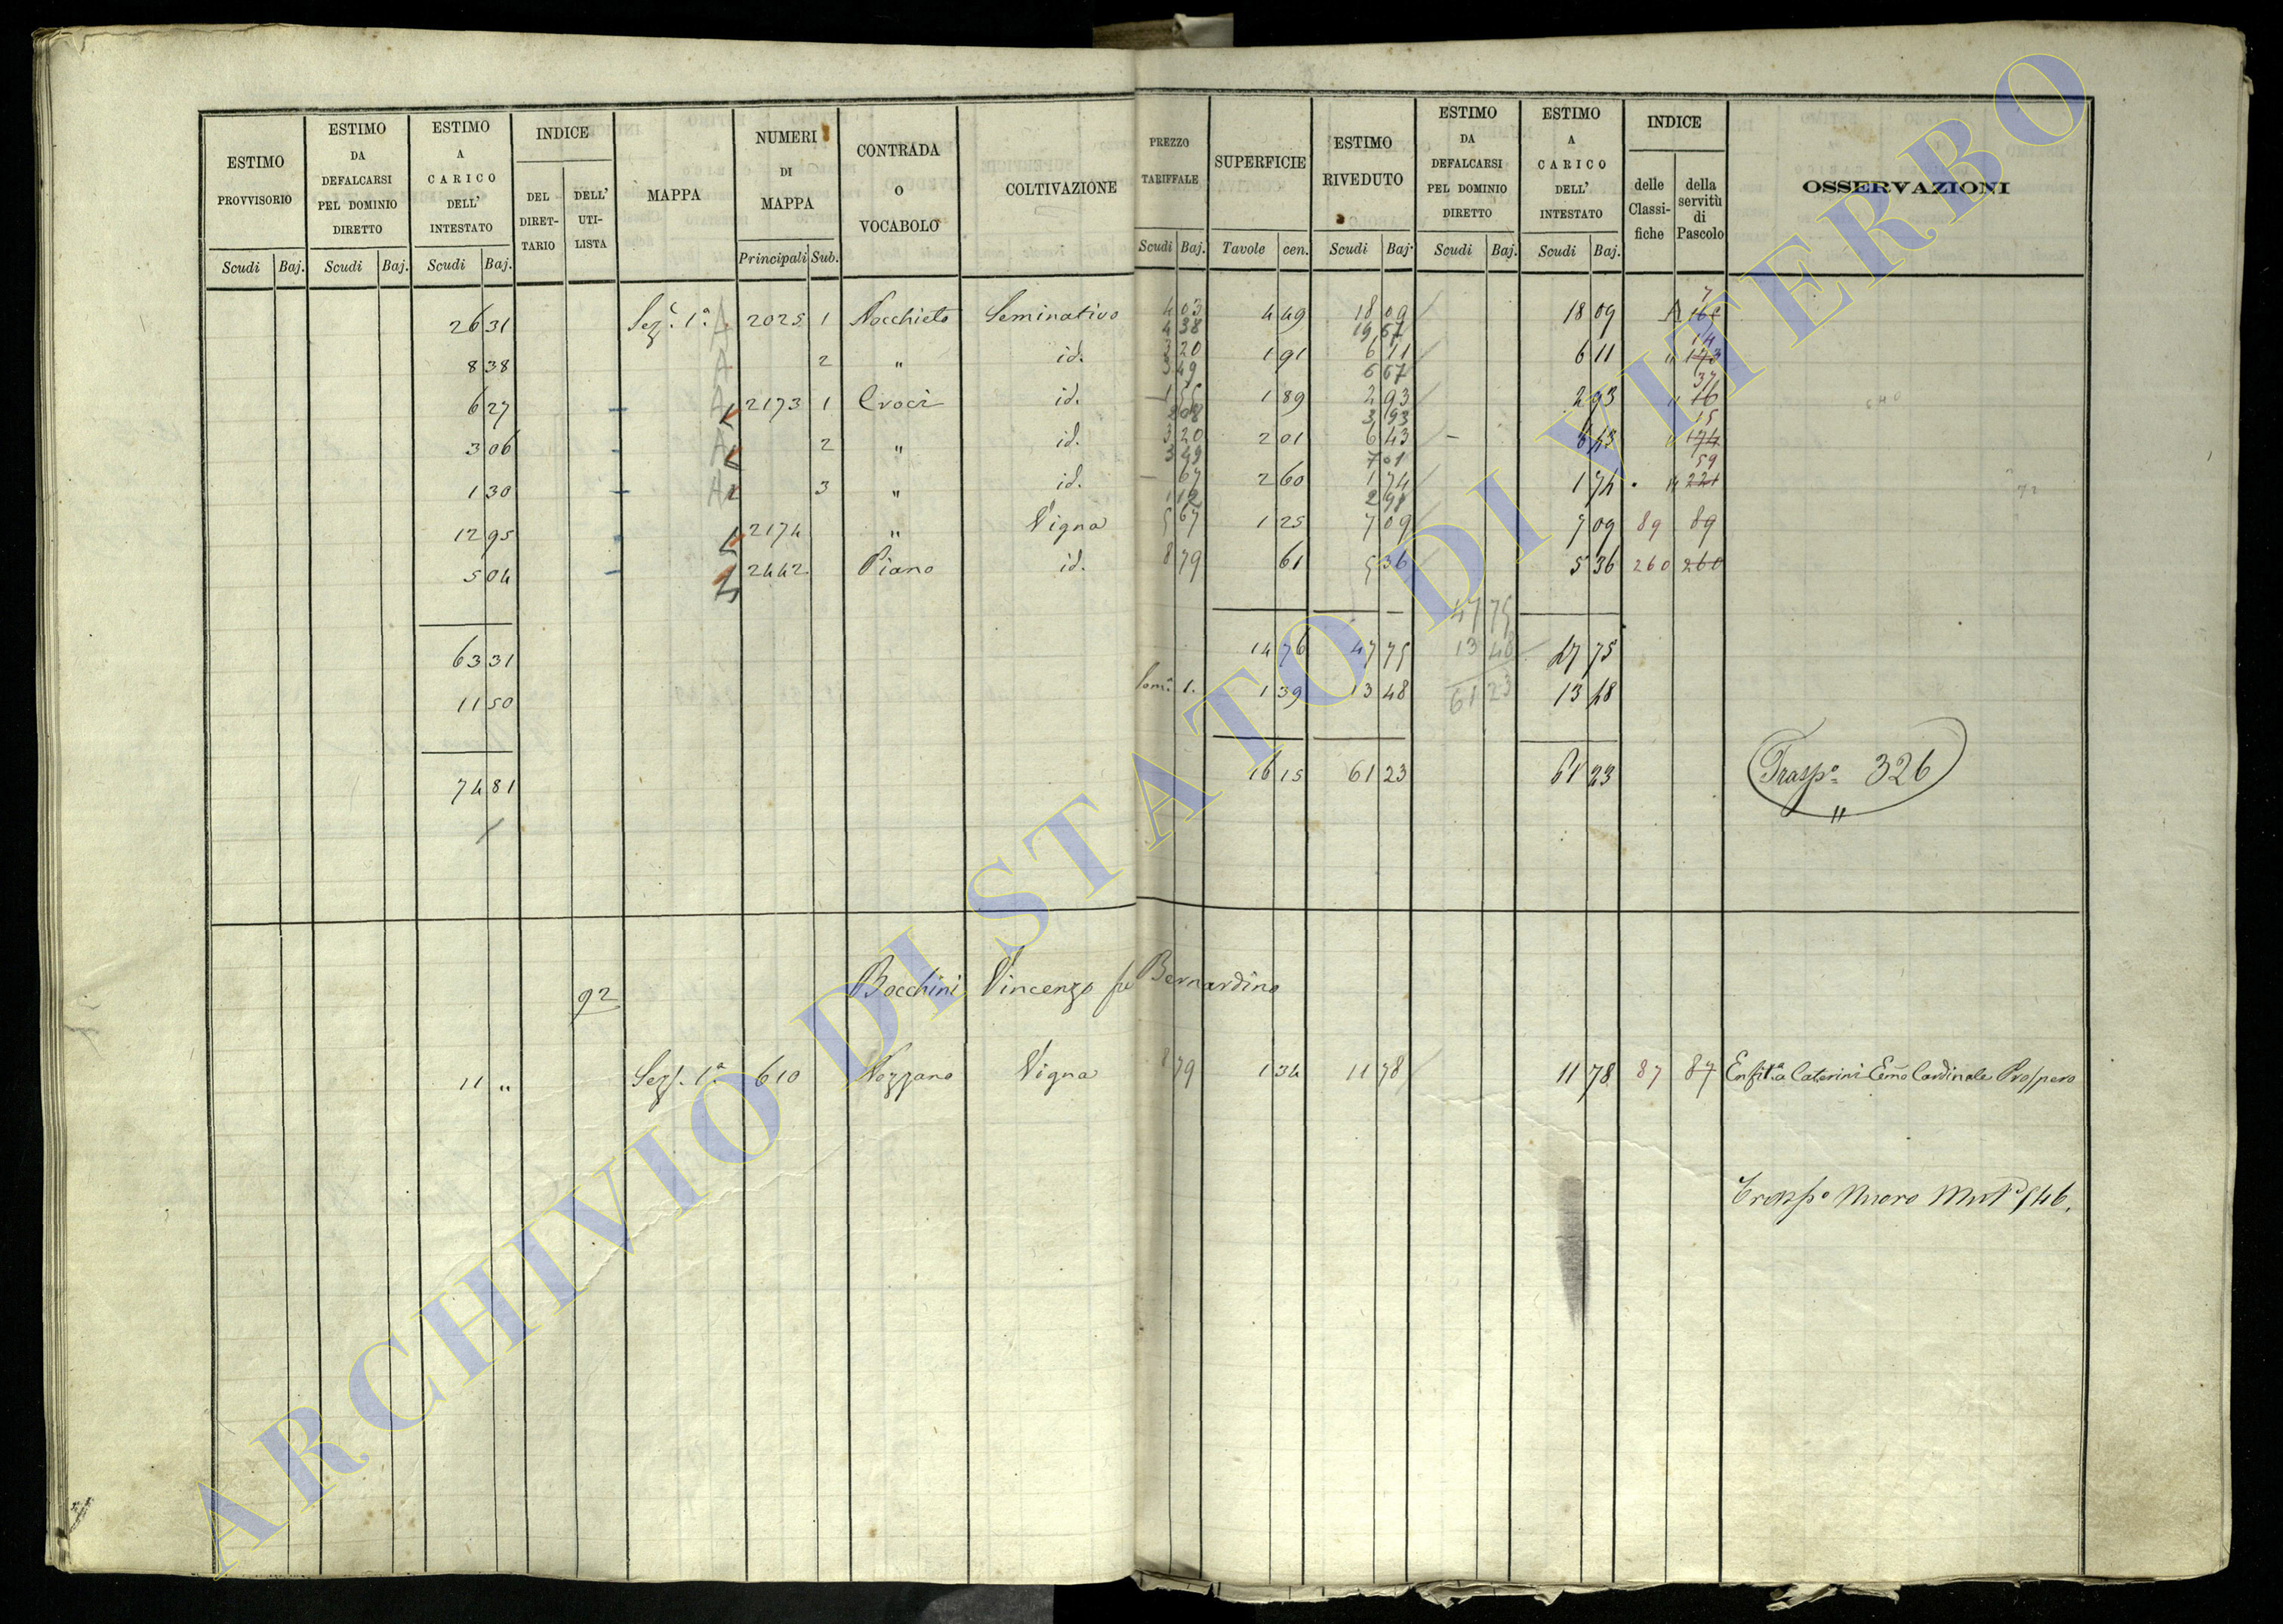 ESTIMO PROVVISORIO | ESTIMO DA DEFALCARSI PEL DOMINIO DIRETTO | ESTIMO A CARICO DELL' INTESTATO | INDICE | MAPPA | NUMERI DI MAPPA | CONTRADA O VOCABOLO | COLTIVAZIONE | PREZZO TARIFFALE | SUPERFICIE | ESTIMO RIVEDUTO | ESTIMO DA DEFALCARSI PEL DOMINIO DIRETTO | ESTIMO A CARICO DELL' INTESTATO | INDICE | OSSERVAZIONI
DEL DIRET-TARIO | DELL' UTI-LISTA | delle Classi-fiche | della servitù di Pascolo
Scudi | Baj. | Scudi | Baj. | Scudi | Baj. | Principali | Sub. | Scudi | Baj. | Tavole | cen. | Scudi | Baj. | Scudi | Baj. | Scudi | Baj.
26 31 | Sez. 1ª | A | 2025 | 1 | Nocchieto | Seminativo | 4 03 | 4 49 | 18 09 | 18 09 | A | 7
4 38 | 19 67
8 38 | A | 2 | " | id. | 3 20 | 1 91 | 6 11 | 6 11 | " | 14 173
3 49 | 6 67
6 27 | A | 2173 | 1 | Croci | id. | 1 55 | 1 89 | 2 93 | 2 93 | " | 37 16
2 08 | 3 93
3 06 | A | 2 | " | id. | 3 20 | 2 01 | 6 43 | 6 43 | " | 15 174
3 49 | 7 01
1 30 | A | 3 | " | id. | 67 | 2 60 | 1 74 | 1 74 | " | 59 221
1 12 | 2 91
12 95 | 2174 | " | Vigna | 5 67 | 1 25 | 7 09 | 7 09 | 89 | 89
5 04 | 2442 | Piano | id. | 8 79 | 61 | 5 36 | 5 36 | 260 | 260
47 75
63 31 | 14 76 | 47 75 | 13 48 | 47 75
11 50 | 1. | 1 39 | 13 48 | 61 23 | 13 48
74 81 | 16 15 | 61 23 | 61 23 | Traspº 326
"
92 | Bocchini Vincenzo fu Bernardino
11 " | Sez. 1ª | 610 | Nozzano | Vigna | 8 79 | 1 34 | 11 78 | 11 78 | 87 | 87 | Enfitª a Caterini Emo Cardinale Prospero
Traspº 546.
ARCHIVIO DI STATO DI VITERBO